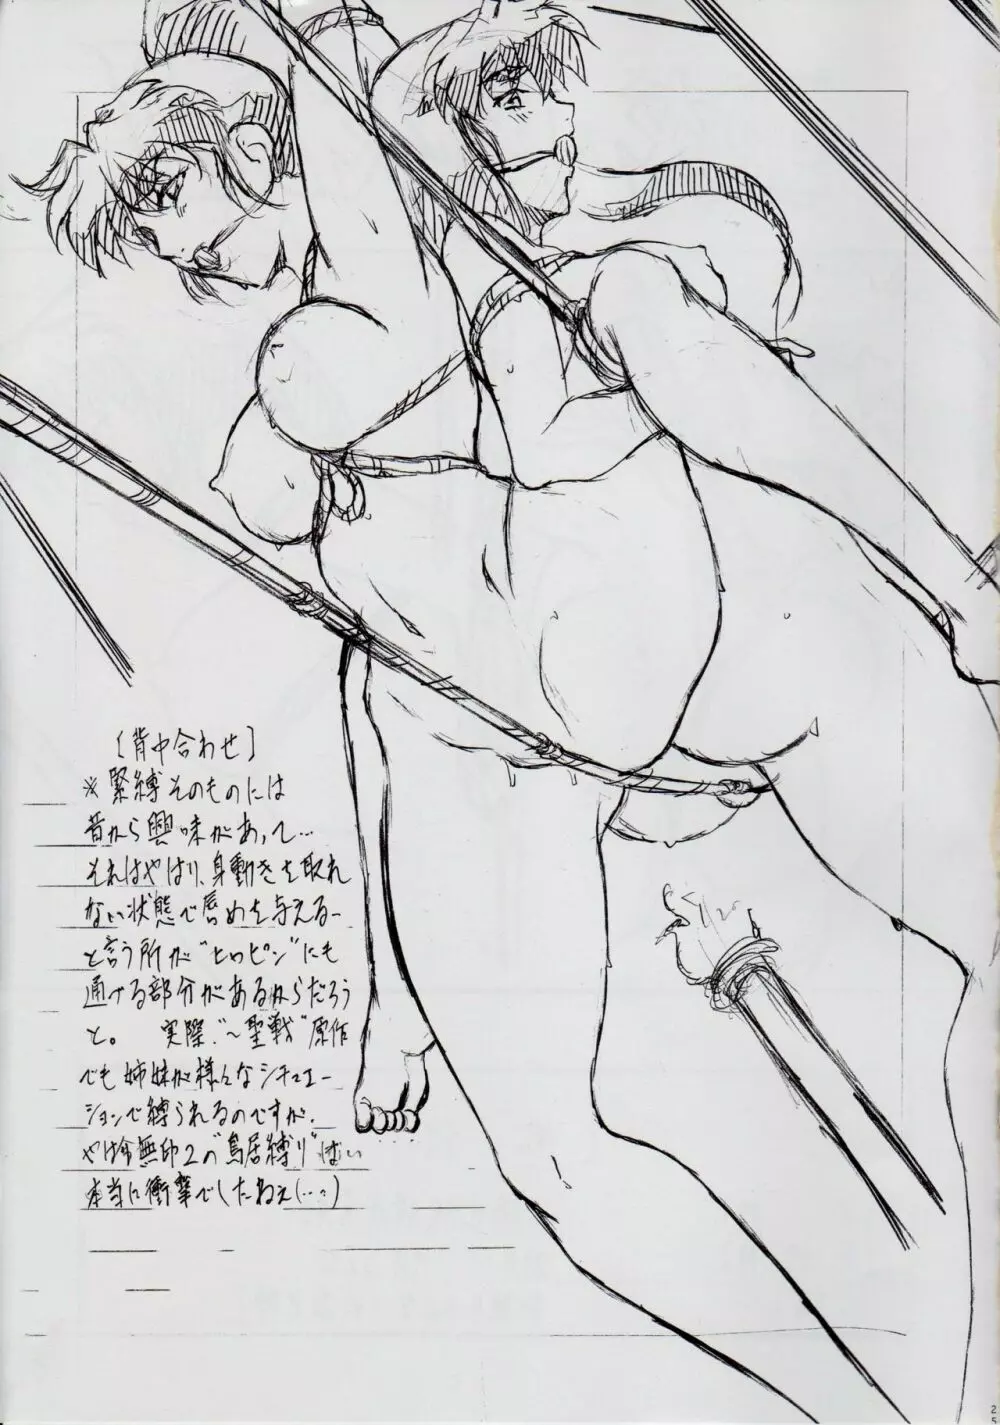 〔背中合わせ〕
※緊縛そのものには
昔から興味があって…
それはやはり、身動きを取れ
ない状態で辱めを与える−
と言う所が〝ヒロピン〟にも
通ける部分があるからだろう
と。 実際〝〜聖戦〟原作
でも姉妹が様んなシチュエー
ションで縛られるのですが、
やはり無印2の〝鳥居縛り〟は
本当に衝撃でしたねぇ(…)
2